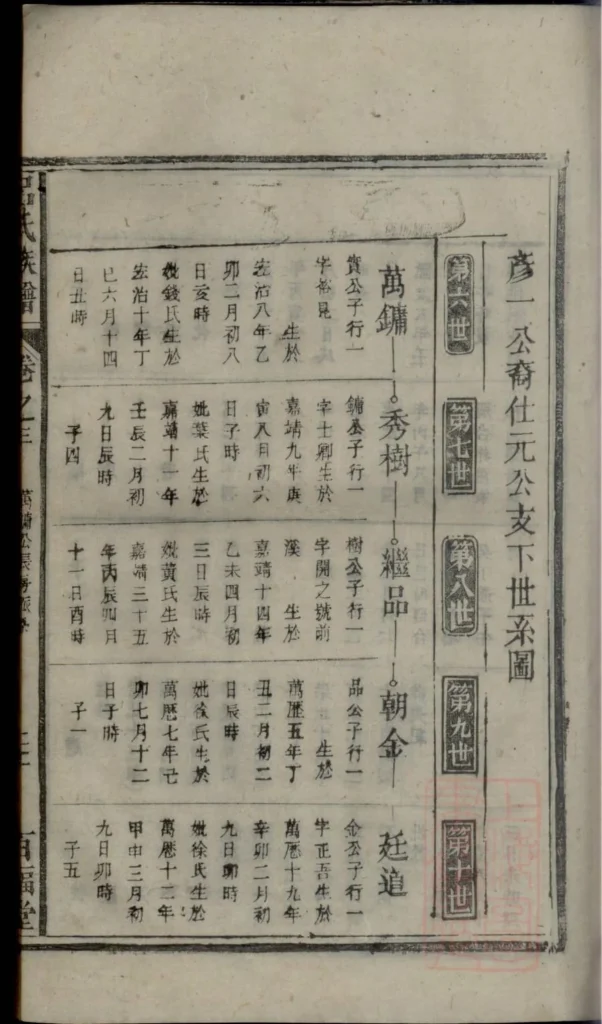 彥一公裔仕元公支下世系圖
第六世
第七世
第八世
第九世
第十世
萬鏞
秀樹
繼品
朝金
廷道
實公子行一
字裕昆
生於
宏治八年乙
卯二月初八
日亥時
妣錢氏生於
宏治十年丁
巳六月十四
日丑時
鏞公子行一
字士卿生於
嘉靖九年庚
寅八月初六
日子時
妣葉氏生於
嘉靖十一年
壬辰二月初
九日辰時
子四
樹公子行一
字開之號前
溪 生於
嘉靖十四年
乙未四月初
三日辰時
妣黃氏生於
嘉靖三十五
年丙辰四月
十一日酉時
品公子行一
生於
萬歷五年丁
丑二月初二
日辰時
妣徐氏生於
萬歷七年己
卯七月十二
日子時
子一
金公子行一
字正吾生於
萬歷十九年
辛卯二月初
九日卯時
妣徐氏生於
萬歷十二年
甲申三月初
九日卯時
子五
氏族譜
卷之三
百福堂